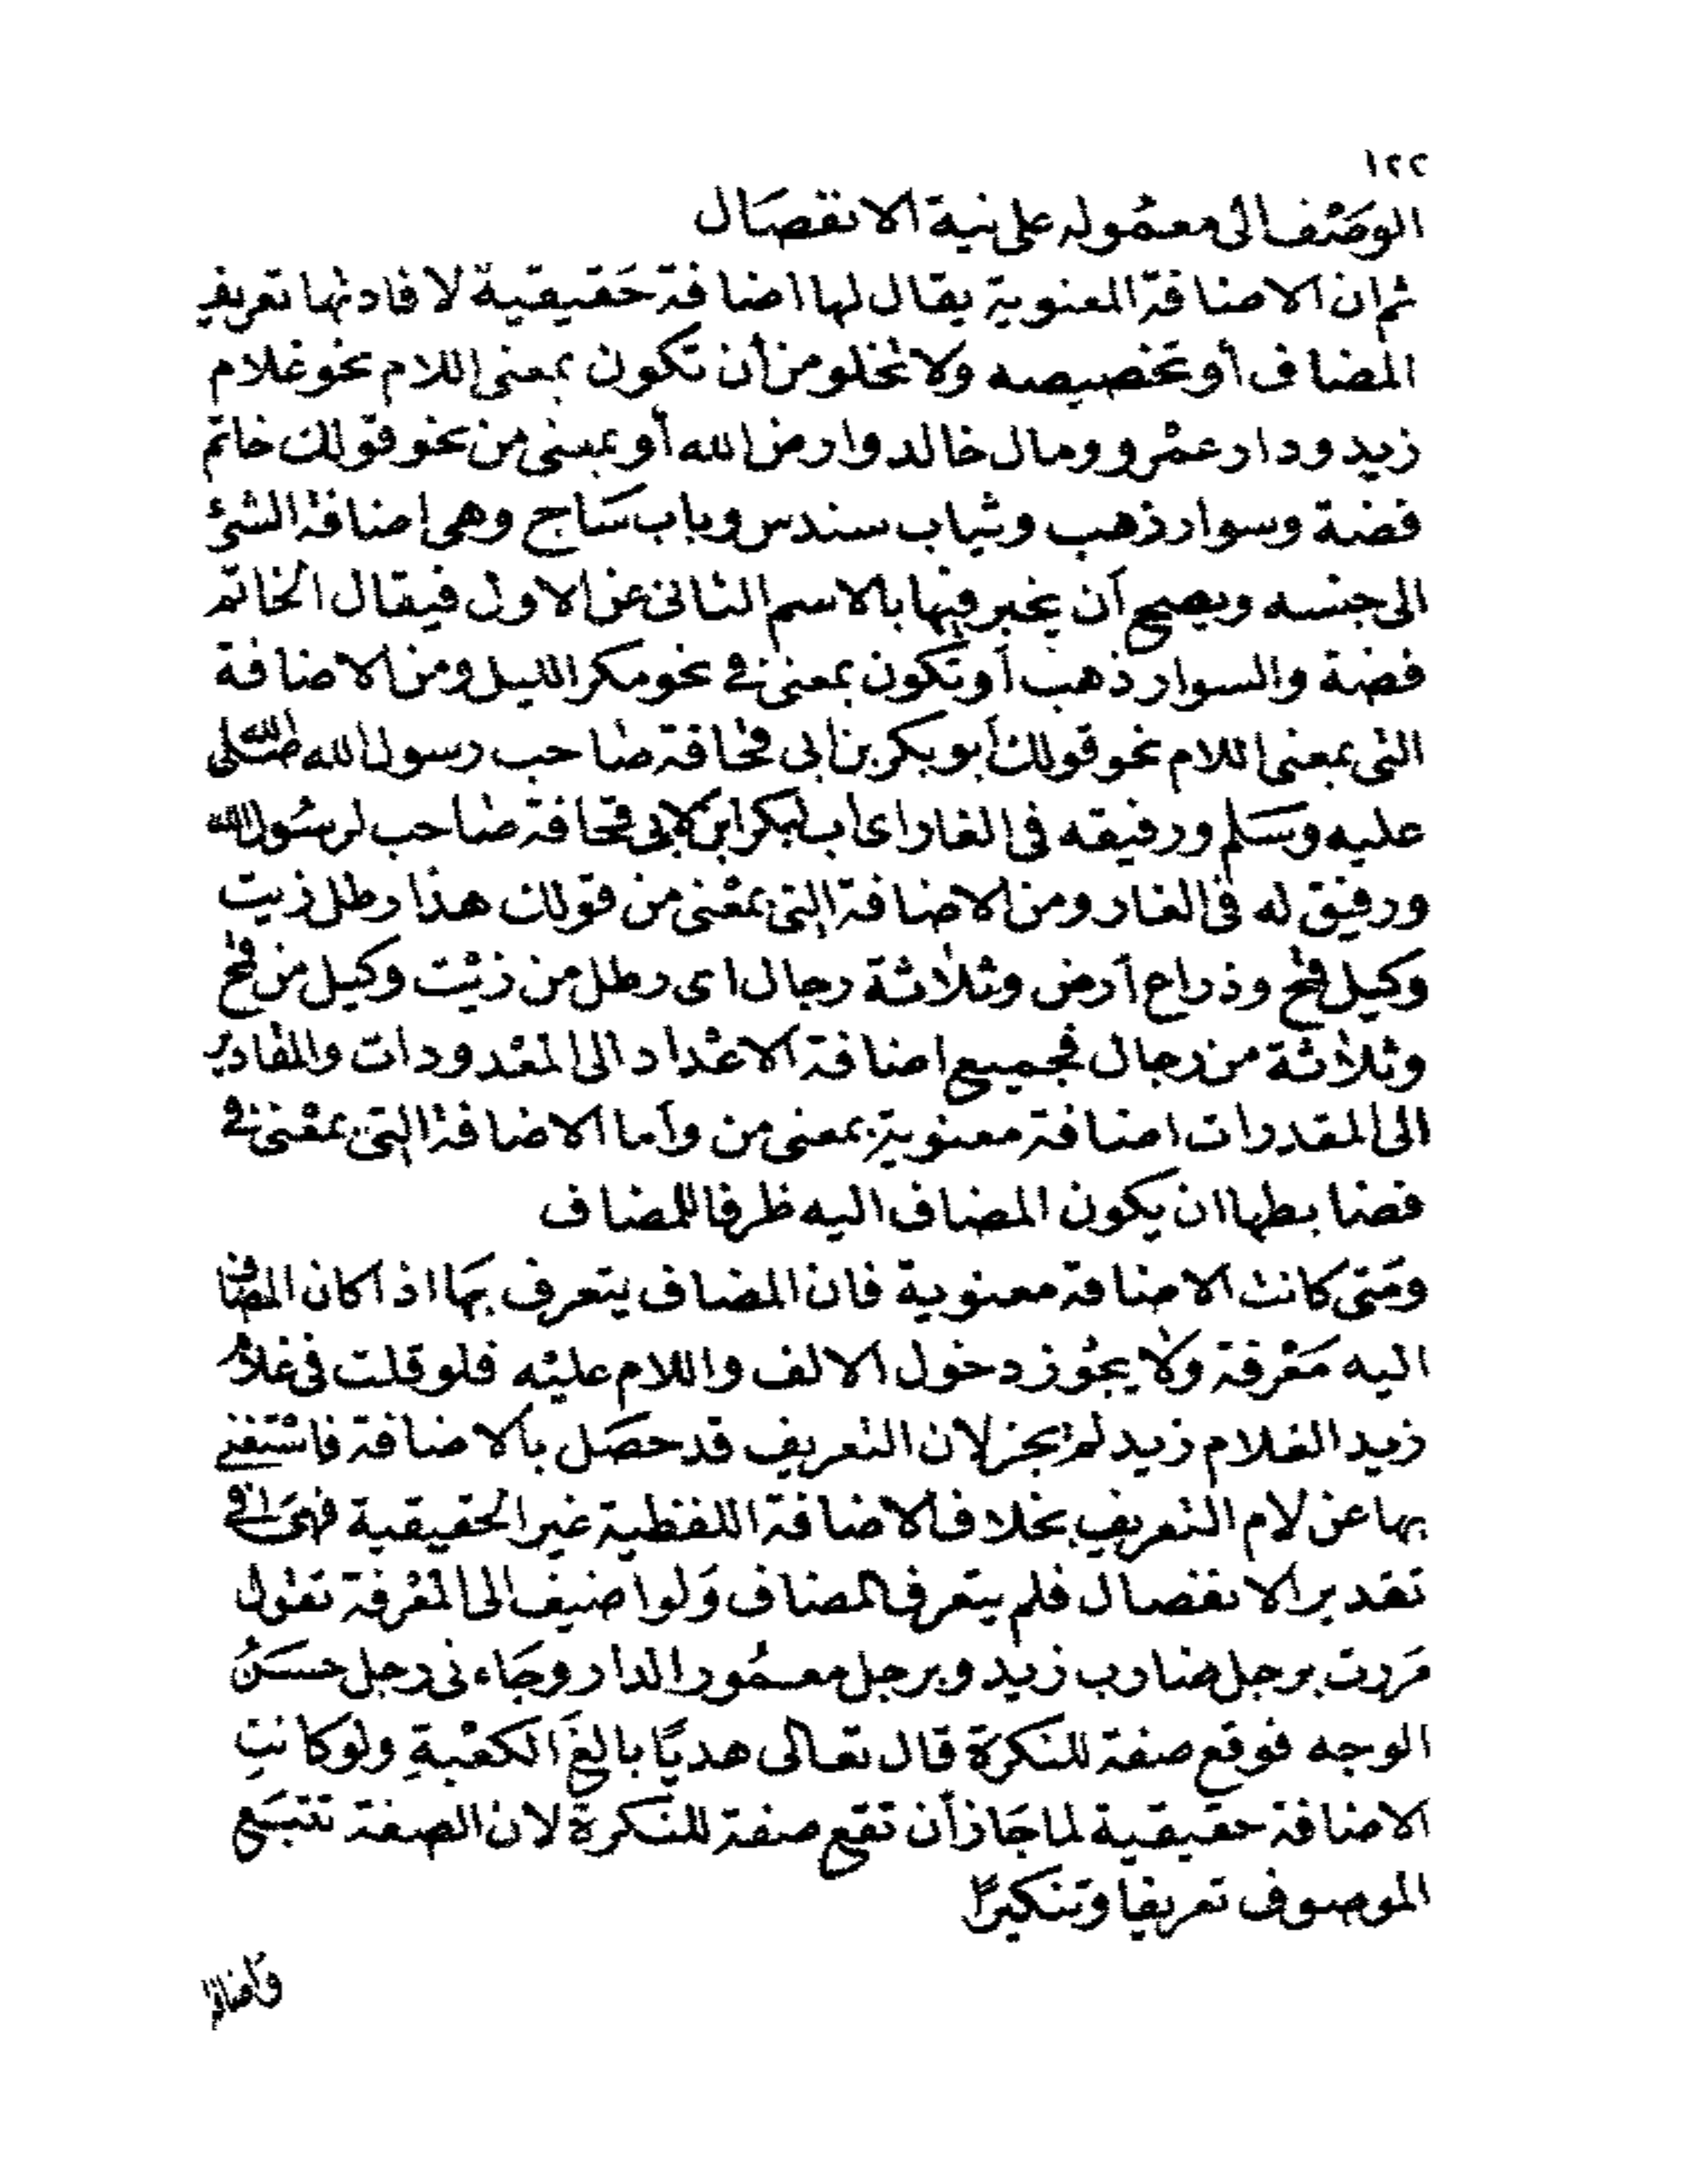 ١٢٢
الوصْف الى معمُوله على نية الانفصَال
ثم ان الاضافة المعنوية يقال لها اضافة حَقيقية لافادتها تعريف
المضاف أو تخصيصه ولا تخلو من أن تكون بمعنى اللام نحو غلام
زيد ودار عمْرو ومال خالد وارض الله أو بمعنى من نحو قولك خاتم
فضة وسوار ذهب وثياب سندس وباب سَاج وهى اضافة الشئ
الى جنسه ويصح أن يخبر فيها بالاسم الثانى عن الاول فيقال الخاتم
فضة والسوار ذهب أو تكون بمعنى فى نحو مكر الليل ومن الاضافة
التى بمعنى اللام نحو قولك أبو بكر بن أبى قحافة صاحب رسول الله صلى الله
عليه وسَلم ورفيقه فى الغار اى أب لبكر ابن لابى قحافة صاحب لرسُول الله
ورفيق له فى الغار ومن الاضافة التى بمعْنى من قولك هذا رطل زيت
وكيل قمح وذراع أرض وثلاثة رجال اى رطل من زيْت وكيل من قمح
وثلاثة من رجال فجميع اضافة الاعْداد الى المعْدودات والمقادير
الى المقدرات اضافة معنوية بمعنى من وأما الاضافة التى بمعْنى فى
فضابطها ان يكون المضاف اليه ظرفا للمضاف
ومَتى كانت الاضافة معنوية فان المضاف يتعرف بهَا اذا كان المضاف
اليه مَعْرفة ولا يجُوز دخول الالف واللام عليْه فلو قلت فى غلام
زيد الغلام زيد لم يجز لان التعريف قد حصَل بالاضافة فاسْتغنى
بها عن لام التعريف بخلاف الاضافة اللفظية غير الحقيقية فهىَ فى
تقدير الانفصال فلم يتعرف المضاف وَلو اضيف الى المعْرفة تقول
مَررت برجل ضارب زيد وبرجل معمُور الدار وجَاءنى رجل حسَنُ
الوجه فوقع صفة للنكرة قال تعالى هديًا بالغَ الكعْبةِ ولو كانتِ
الاضافة حقيقية لما جَاز أن تقع صفة للنكرة لان الصفة تتبَع
الموصوف تعريفا وتنكيرًا